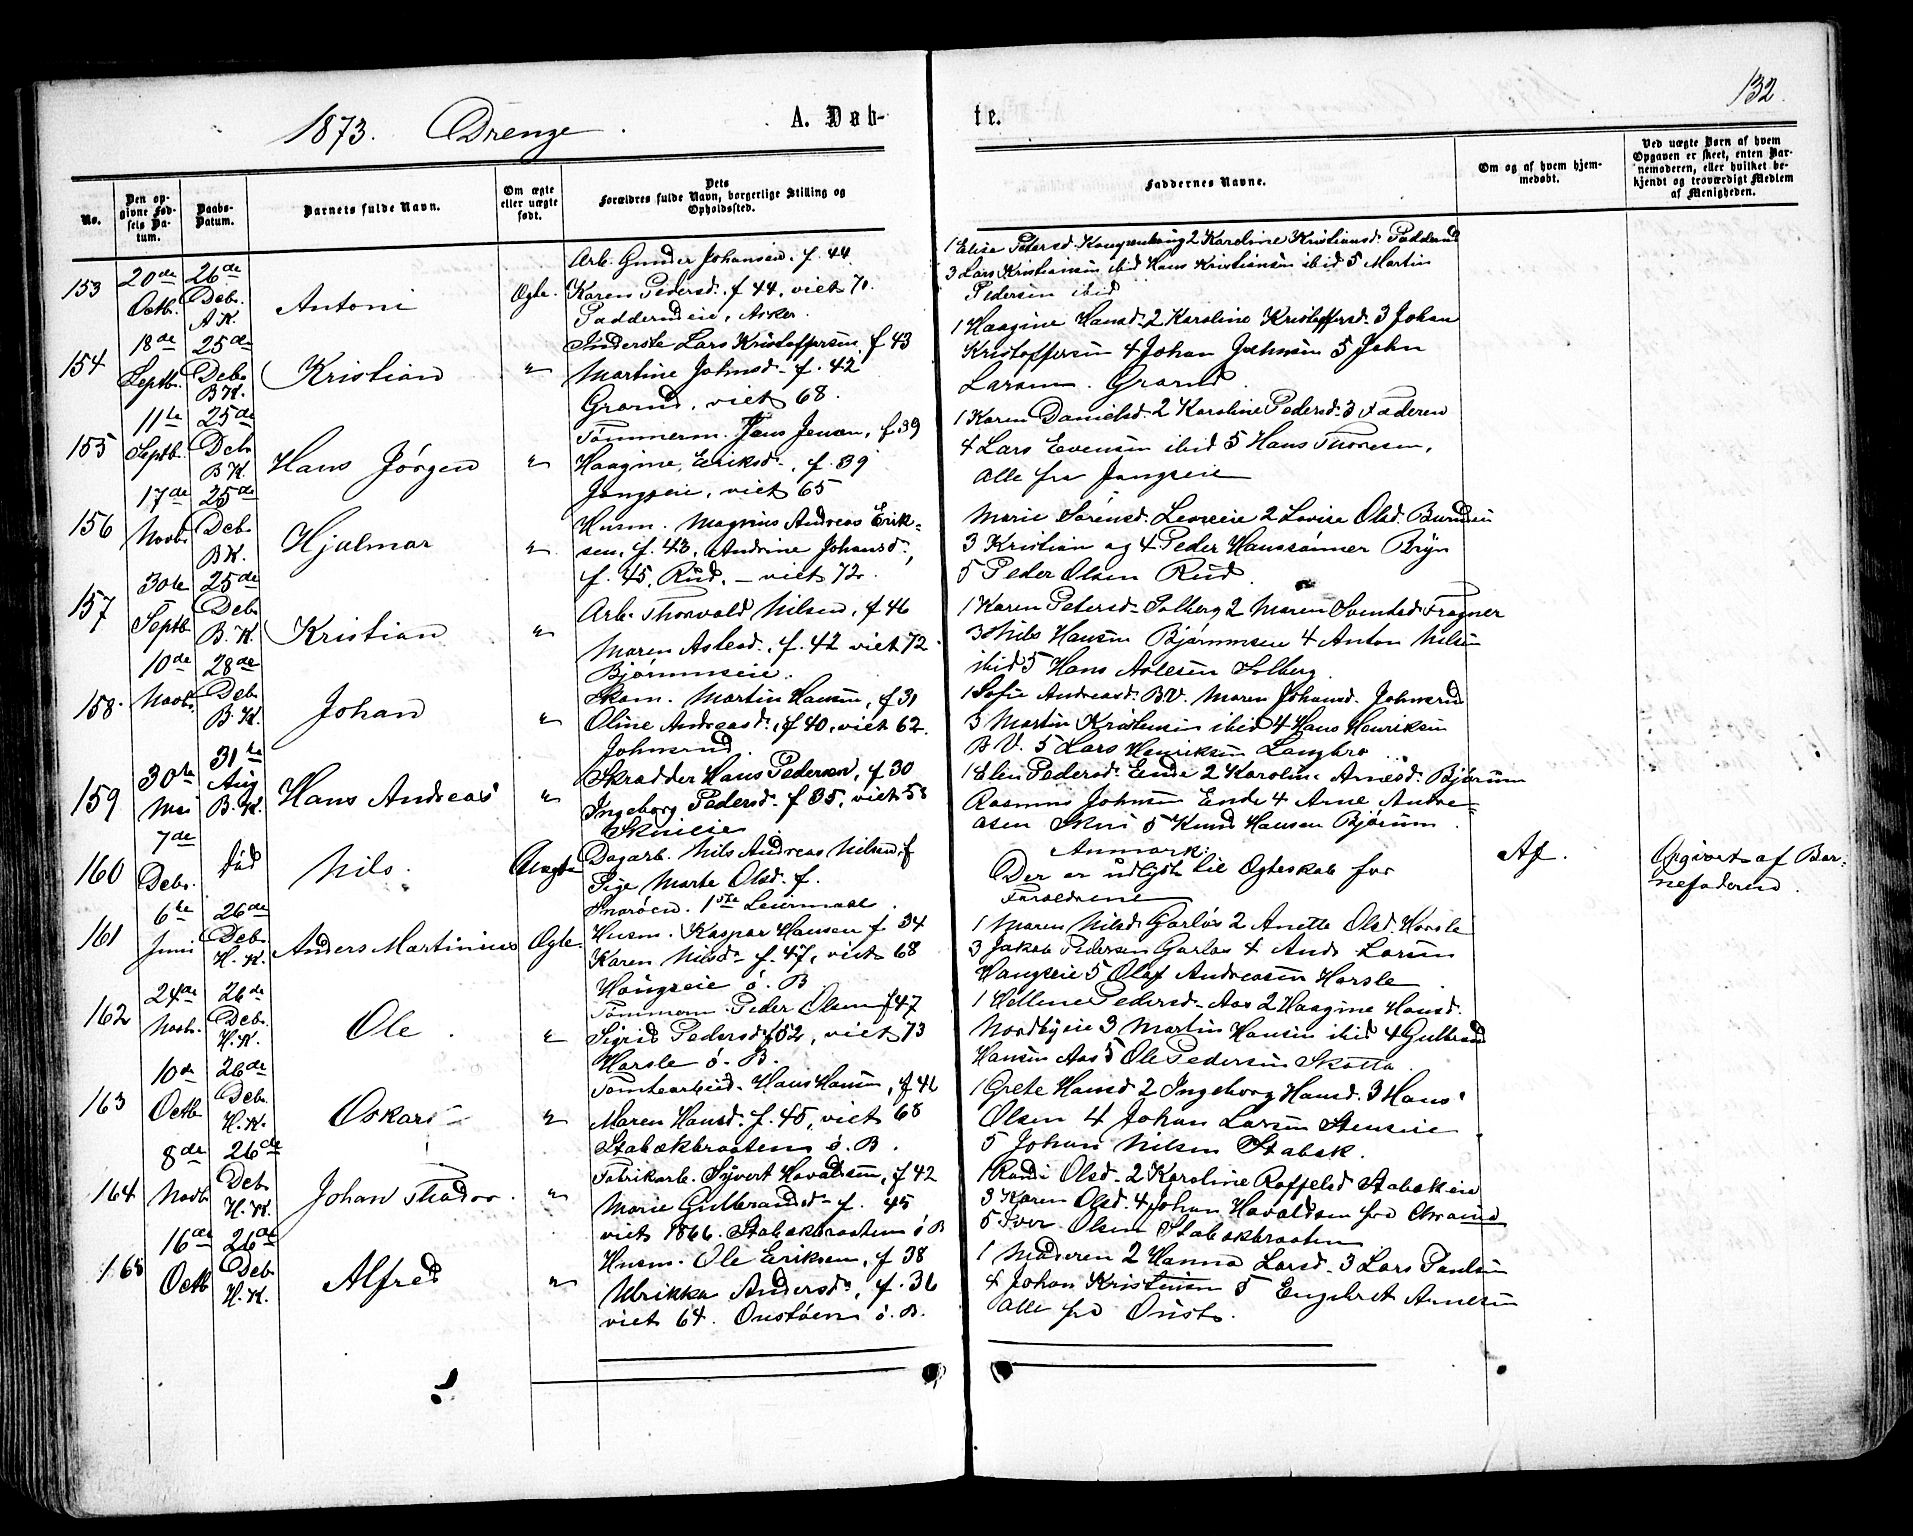 132.
1873. Drenge. A. Døb- te.
No.
Den opgivne Fødsels Datum.
Daabs-Datum.
Barnets fulde Navn.
Om ægte eller uægte født.
Dets Forældres fulde Navn, borgerlige Stilling og Opholdssted.
Faddernes Navne.
Om og af hvem hjemmedøbt.
Ved uægte Børn af hvem Opgaven er skeet, enten Barnemoderen, eller hvilket bekjendt og troværdigt Medlem af Menigheden.
153 20de Octb. 26de Deb. A K. Antoni Ægte.
Arb. Gunder Johansen. f. 44
Karen Pedersd. f 44, viet 71.
Padderudeie, Asker.
1 Elise Petersd. 2 Karoline Kristiansd. Padderud
3 Lars Kristiansen ibid Hans Kristiansen ibid 5 Martin
Pedersen ibid
154 18de Septb. 25de Deb. B K. Kristian "
Inderste Lars Kristoffersen f 43
Martine Johnsd. f. 42
Grorud, viet 68.
1 Haagine Hansd. 2 Karoline Kristoffersd. 3 Johan
Kristoffersen 4 Johan Johnsen 5 John
Larsen. Grorud.
155 11te Septb. 25de Deb. B K Hans Jørgen "
Tømmerm. Jens Jensen, f. 39
Haagine Eriksd., f. 39
Jongseie, viet 65
1 Karen Danielsd. 2 Karoline Pedersd. 3 Faderen
4 Lars Evensen ibid 5 Hans Thoresen,
alle fra Jongseie
156 17de Novb. 25de Deb B K. Hjalmar "
Husm. Magnus Andreas Erik-
sen, f. 43, Andrine Johansd.,
f. 45, Rud, – viet 72.
Marie Sørensd. 2 Lovise Olsd.
3 Kristian og 4 Peder Hanssønner Bryn
5 Peder Olsen Rud.
157 30te Septb 25de Deb. B. K Kristian "
Arb. Thorvald Nilsen, f 46
Maren Aslesd., f. 42 viet 72.
Bjørnmseie.
1 Karen Petersd. Solberg 2 Maren Fragner
3 Nils Hansen 4 Anton Nilsen
ibid 5 Hans Aslesen Solberg.
158. 10de Novb. 28de Deb. B. K. Johan "
Skom. Martin Hansen, f 31
Oline Andreasd., f 40, viet 62.
Johnsrud.
1 Sofie Andreasd. B.V. Maren Johansd. Johnsrud
3 Martin Kristensen ibid 4 Hans Henriksen
B V. 5 Lars Henriksen
159 30te Mai 31te Aug B. K. Hans Andreas "
Skrædder Hans Pedersen, f 30
Ingeborg Pedersd. f 35, viet 58
Skuieie
1 Elen Pedersd. Ende 2 Karoline Arnesd. Bjørum
Rasmus Johnsen Ende 4 Arne Andre-
asen Skui 5 Knud Hansen Bjørum.
160 7de Debr. død Nils. Uægte
Dagarb. Nils Andreas Nilsen, f
Pige Marte Olsd. f.
Snarøen. 1ste Leiermaal.
Anmærk:
Der er udlyst til Ægteskab for
Forældrene
Af.
Opgivet af Bar-
nefaderen.
161 6te Juni 26de Deb. H. K. Anders Martinius Ægte.
Husm. Kaspar Hansen f. 34
Karen Nilsd. f. 47, viet 68
Haugseie ø. B
1 Maren Nilsd. Garløs 2 Anette Olsd. Horsle
3 Jakob Pedersen Garløs 4 Larsen
Haugseie 5 Olaf Andreasen Horsle.
162 24de Novb. 26de Deb. H. K. Ole. "
Tømmerm. Peder Olsen f 47
Sigrid Pedersd. f 52, viet 73
Horsle ø. B.
1 Hellene Pedersd. Aas 2 Haagine Hansd.
Nordbyeie 3 Martin Hansen ibid 4 Gulbrand
Hansen Aas 5 Ole Pedersen Skotta.
163 10de Octb 26de Deb. H. K. Oskar "
Tomtearbeid. Hans Hansen, f 46
Maren Hansd. f. 45, viet 68
Stabækbraaten ø. B.
1 Grete Hansd 2 Ingeborg Hansd. 3 Hans
Olsen 4 Johan Larsen
5 Johan Nilsen Stabæk.
164 8de Novb 26de Deb H. K. Johan Thodor. "
Fabrikarb. Syvert Havaldsen, f 42
Marie Gulbrandsd. f. 45
viet 1866. Stabækbraaten ø B
1 Randi Olsd. 2 Karoline Stabækeie
3 Karen Olsd. 4 Johan Havaldsen fra
5 Iver Olsen Stabækbraaten
165 16de Octb 26de Deb. H. K. Alfred "
Husm. Ole Eriksen, f 38
Ulrikka Andersd., f. 36
viet 64. Onstøen ø. B.
1 Moderen 2 Hanna Larsd. 3 Lars Paulsen
4 Johan Kristensen 5 Engebret Arnesen
alle fra